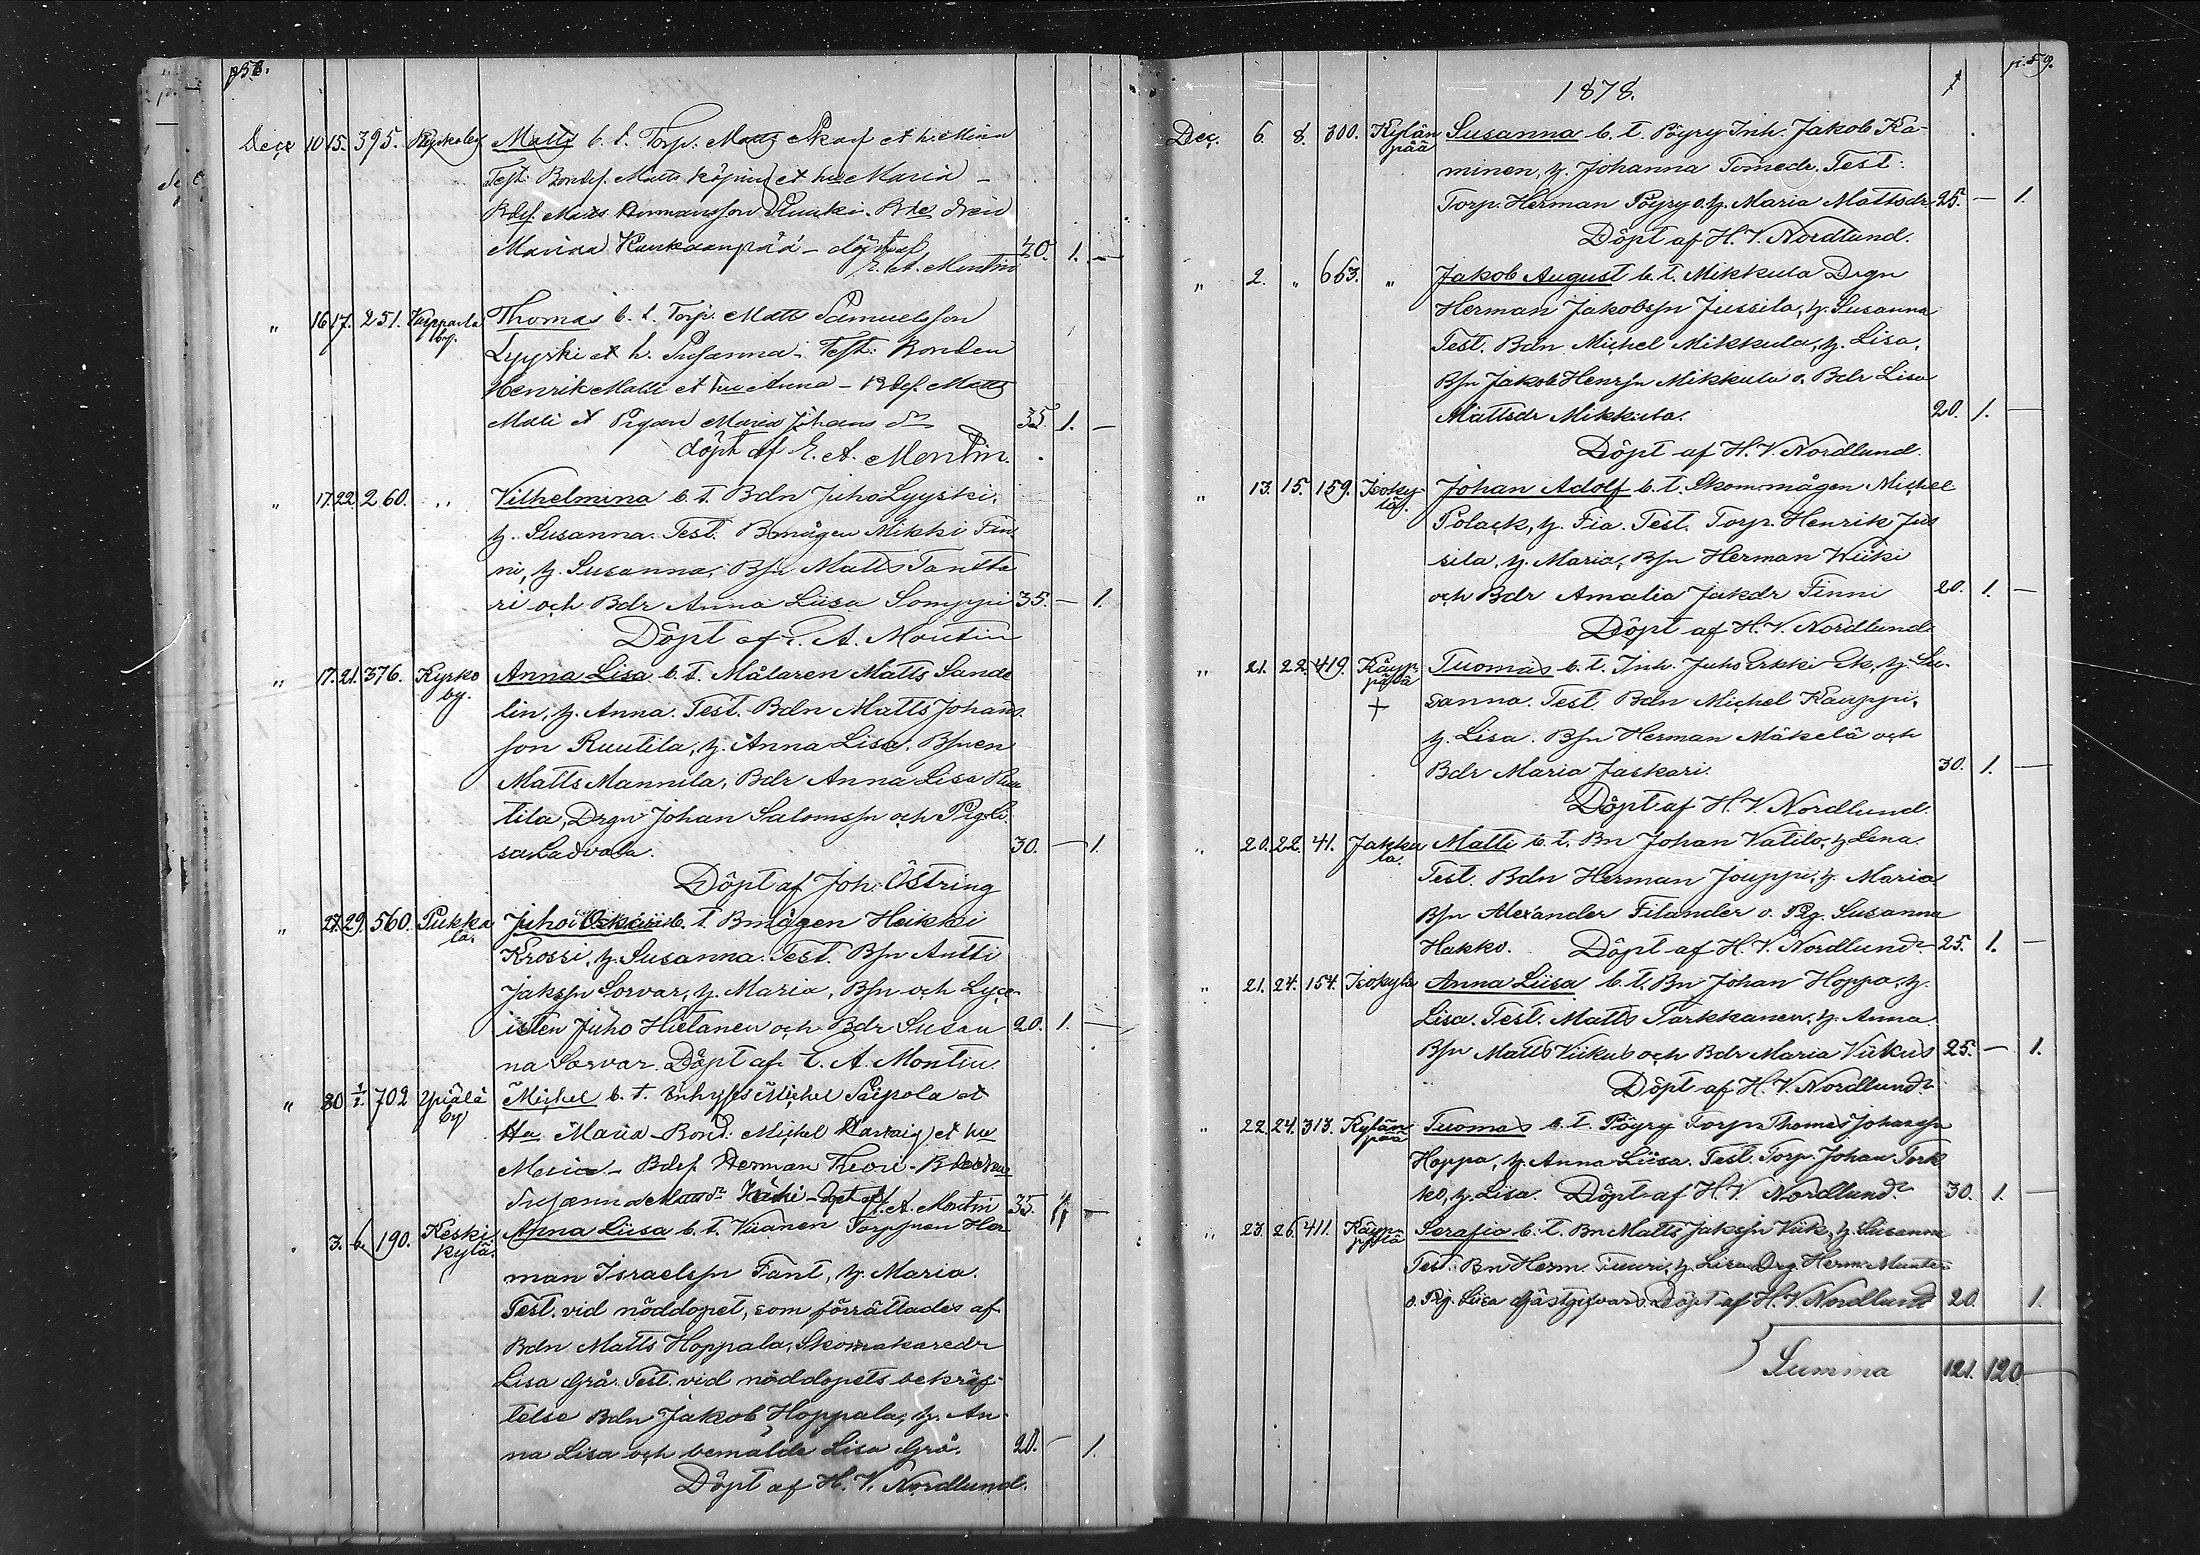 p 58.
Decr 10 15. 395. Kyrkoby Matts b. t. Torp. Matts Skarf et h. Mina
Test: Bondes. Matts Köpinä et hu Maria –
Bdes. Matts Hermansson Bde dren
Marina Kankaanpää – döpt af 20. 1. –
E. A. Montin
" 16 17. 251. by. Thomas b. t. Torp. Matts Samuelsson
Lyyski et h. Susanna. Test: Bonden
Henrik Malli et hu Anna – Bdes. Matts
Malli et Pigan Maria Johans dr 35 1. –
döpt af E. A. Montin.
" 17. 22. 260. " Vilhelmina b. t. Bdn Juho Lyyski,
h. Susanna. Test. Bmågen Mikki Fin-
ni, h. Susanna, Bsn Matts Tantta
ri och Bdr Anna Liisa Somppi 35. – 1.
Döpt af E. A. Montin
" 17. 21. 376. Kyrko by. Anna Lisa b. t. Målaren Matts Sande
lin, h. Anna. Test. Bdn Matts Johans
son Ruutila, h. Anna Lisa, Bsnen
Matts Mannila, Bdr Anna Lisa Ruu
tila, Drgn Johan Salomssn och Pig. Li
sa Ladvala. 30. – 1.
Döpt af Joh. Östring
" 27. 29. 560. Pukka la. Juho Oskari b. t. Bmågen Heikki
Krossi, h. Susanna. Test. Bsn Antti
Jakssn Sorvar, h. Maria, Bsn och Lyce-
isten Juho Hietanen och Bdr Susan 20. 1. –
na Sorvar. Döpt af E. A. Montin.
" 30 1/1. 702 Ypäjä by Michel b. t. Inhyses Michel Seipola et
Hu Maria – Bond. Michel et hu
Maria – Bdes. Herman
Susanna Matts dr – döpt af E. A. Montin 35. 1 –
" 3. 6. 190. Keski kylä. Anna Liisa b. t. Viianen Torpsonen Her
man Israelssn Fant, h. Maria.
Test. vid nöddopet, som förrättades af
Bdn Matts Hoppala, Skomakaredr
Lisa Grå. Test. vid nöddopets bekräf-
telse Bdn Jakob Hoppala, h. An-
na Lisa och bemälde Lisa Grå. 20. – 1.
Döpt af H. V. Nordlund.
1878. p. 59.
Dec. 6. 8. 300. Kylän pää Susanna b. t. Pöyry Inh. Jakob Ka-
minen, h. Johanna Tomedr. Test.
Torp. Herman Pöyry o. h. Maria Mattsdr 25. – 1.
Döpt af H. V. Nordlund.
" 2. " 653. " Jakob August b. t. Mikkula Drgn
Herman Jakobssn Jussila, h. Susanna
Test. Bdn Michel Mikkula, h. Lisa,
Bsn Jakob Henrsn Mikkula o. Bdr Lisa
Mattsdr Mikkula. 20. 1. –
Döpt af H. V. Nordlund.
" 13. 15. 159. Isoky lä. Johan Adolf b. t. Skom.mågen Michel
Polack, h. Fia. Test. Torp. Henrik Jus
sila, h. Maria, Bsn Herman Wiiki
och Bdr Amalia Jakdr Finni 20. 1. –
Döpt af H. V. Nordlund
" 21. 22. 419. Käyp pälä + Tuomas b. t. Inh. Juho Erkki Ek, h. Su-
sanna. Test. Bdn Michel Kauppi,
h. Lisa. Bsn Herman Mäkelä och
Bdr Maria Jaskari. 30. 1. –
Döpt af H. V. Nordlund.
" 20. 22. 41. Jakka la. Matti b. t. Bn Johan Vatilo, h. Lena.
Test. Bdn Herman Jouppi, h. Maria
Bsn Alexander Filander o. Pig. Susanna
Hakko. Döpt af H. V. Nordlund. 25. 1. –
" 21. 24. 154. Isokylä Anna Liisa b. t. Bn Johan Hoppa, h.
Lisa. Test. Matts Parkkanen, h. Anna.
Bsn Matts Viikus och Bdr Maria Viikus 25. – 1.
Döpt af H. V. Nordlund.
" 22. 24. 313. Kylän pää Tuomas b. t. Pöyry Torpn Thomas Johanssn
Hoppa, h. Anna Liisa. Test. Torp. Johan Tork
ko, h. Lisa. Döpt af H. V. Nordlund. 30. 1. –
" 23. 26. 411. Käyp pälä Serafia b. t. Bn Matts Jakssn Viik, h. Susanna
Test. Bn Herm. Tuuri, h. Lisa Drg. Herm. Munter
o. Pig. Liisa Gästgifvars. Döpt af H. V. Nordlund 20. 1.
Summa 121. 120